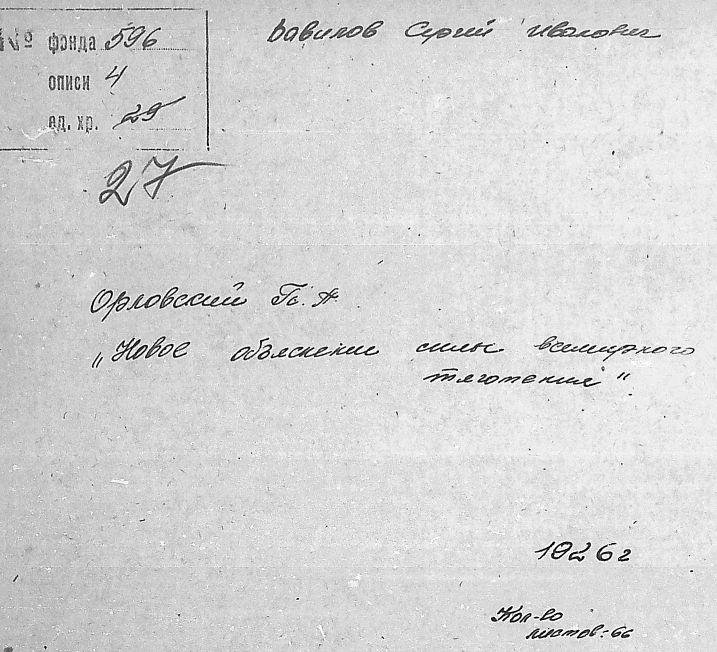 № фонда 596
описи 4
ед. хр. 29
27
Вавилов Сергей Иванович
Орловский П. А.
„Новое объяснение силы всемирного
тяготения“
1926 г
Кол-во
листов: 66